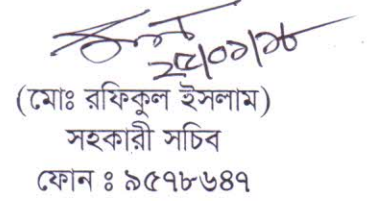 (মোঃ রফিকুল ইসলাম)
সহকারী সচিব
ফোন ঃ ৯৫৭৮৬৪৭